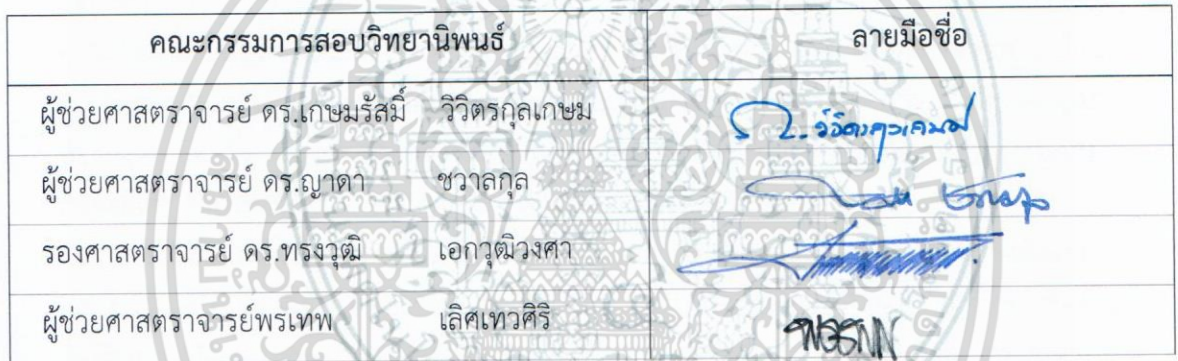 คณะกรรมการสอบวิทยานิพนธ์ ลายมือชื่อ
ผู้ช่วยศาสตราจารย์ ดร.เกษมรัสมิ์ วิวิตรกุลเกษม
ผู้ช่วยศาสตราจารย์ ดร.ญาดา ชวาลกุล
รองศาสตราจารย์ ดร.ทรงวุฒิ เอกวุฒิวงศา
ผู้ช่วยศาสตราจารย์พรเทพ เลิศเทวศิริ